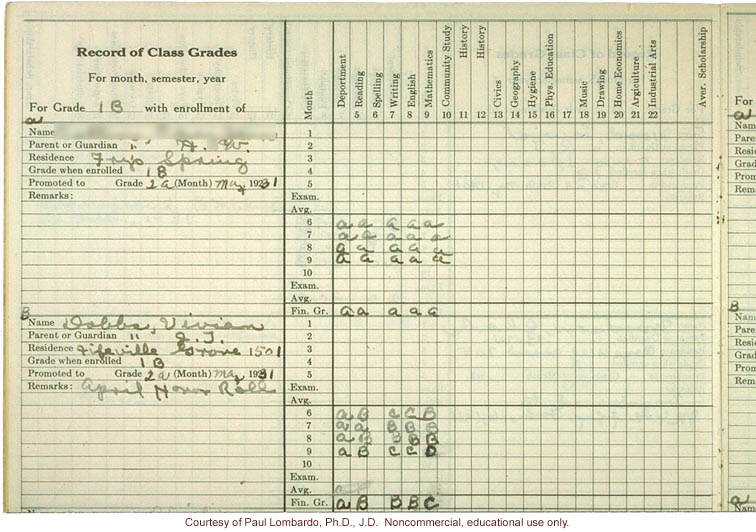 Record of Class Grades
For month, semester, year
For Grade 1 B with enrollment of
Month Deportment Reading Spelling Writing English Mathematics Community Study History History Civics Geography Hygiene Phys. Education Music Drawing Home Economics Argiculture Industrial Arts Aver. Scholarship
5 6 7 8 9 10 11 12 13 14 15 16 17 18 19 20 21 22
a
Name
1
Parent or Guardian " H. W.
2
Residence Frys Spring
3
Grade when enrolled 1 B
4
Promoted to Grade 2 a (Month) May 1931
5
Remarks:
Exam.
Avg.
6 a a a a a
7 a a a a a
8 a a a a a
9 a a a a a
10
Exam.
Avg.
Fin. Gr. a a a a a
B
Name Dobbs, Vivian
1
Parent or Guardian " J. T.
2
Residence Fifeville Grove 1501
3
Grade when enrolled 1 B
4
Promoted to Grade 2 a (Month) May 1931
5
Remarks: April Honor Roll
Exam.
Avg.
6 a B C C B
7 a a B B B
8 a B B B B
9 a B C C D
10
Exam.
Avg.
Fin. Gr. a B B B C
For
a
Name
Paren
Resid
Grad
Prom
Rem
B
Nam
Pare
Resi
Grad
Pron
Rem
Courtesy of Paul Lombardo, Ph.D., J.D. Noncommercial, educational use only.